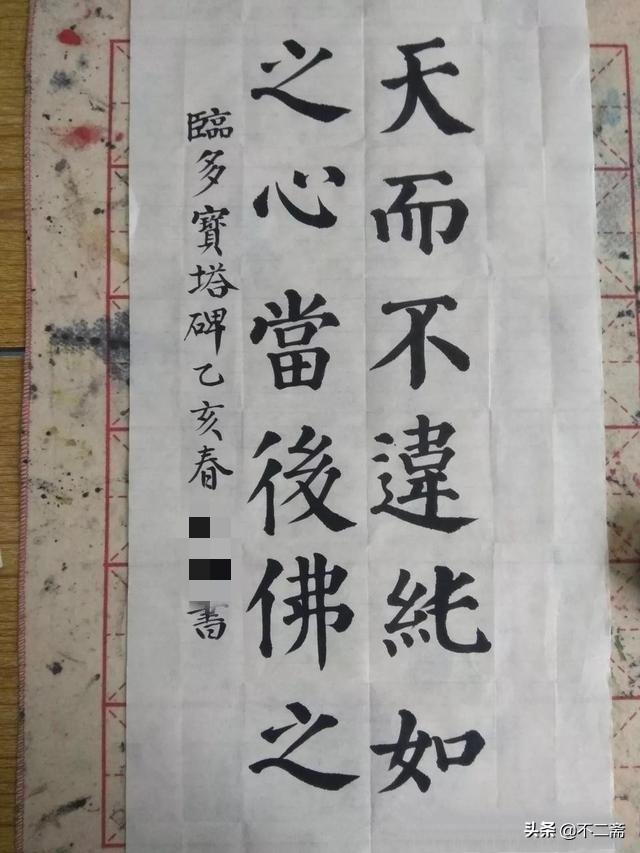 天而不違純如
之心當後佛之
臨多寶塔碑乙亥春
書
头条 @不二斋